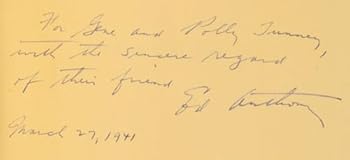 For Gene and Polly Tunney,
with the sincere regard
of their friend
Ed Anthony
March 27, 1941